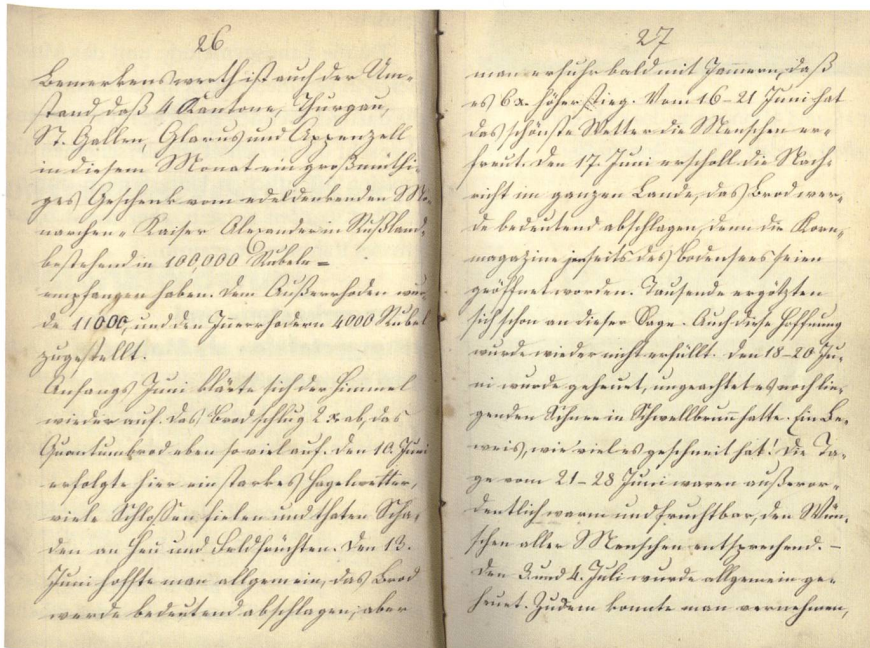 26
Bemerkenswerth ist auch der Um-
stand, daß 4 Kantone, Thurgau,
St. Gallen, Glarus und Appenzell
in diesem Monat ein großmüthi-
ges Geschenk vom edeldenkenden Mo-
narchen Kaiser Alexander in Rußland,
bestehend in 100,000 Rubeln =
empfangen haben. Dem Außerrhoden wur-
de 11000, und den Innerrhodern 4000 Rubel
zugestellt.
Anfangs Juni klärte sich der Himmel
wieder auf. Das Brod schlug 2 x ab, das
Quantumbrod eben so viel auf. Den 10. Juni
erfolgte hier ein starkes Hagelwetter,
viele Schloßen fielen und thaten Scha-
den an Heu und Feldfrüchten. Den 13.
Juni hoffte man allgemein, das Brod
werde bedeutend abschlagen; aber
27
man erfuhr bald mit Jammern, daß
es 6 x. höher stieg. Vom 16-21 Juni hat
das schönste Wetter die Menschen er-
freut. Den 17. Juni erscholl die Nach-
richt im ganzen Lande, das Brod wer-
de bedeutend abschlagen, denn die Korn-
magazine jenseits des Bodensees seien
geöffnet worden. Tausende ergötzten
sich schon an dieser Sage. Auch diese Hoffnung
wurde wieder nicht erfüllt. Den 18-20 Ju-
ni wurde geheuet, ungeachtet es noch lie-
genden Schnee in Schwellbrunn hatte. Ein Be-
weis, wie viel es geschneit hat! Die Ta-
ge vom 21-28 Juni waren außeror-
dentlich warm und fruchtbar, den Wün-
schen aller Menschen entsprechend. -
Den 2. und 4. Juli wurde allgemein ge-
heuet. Zudem konnte man vernehmen,